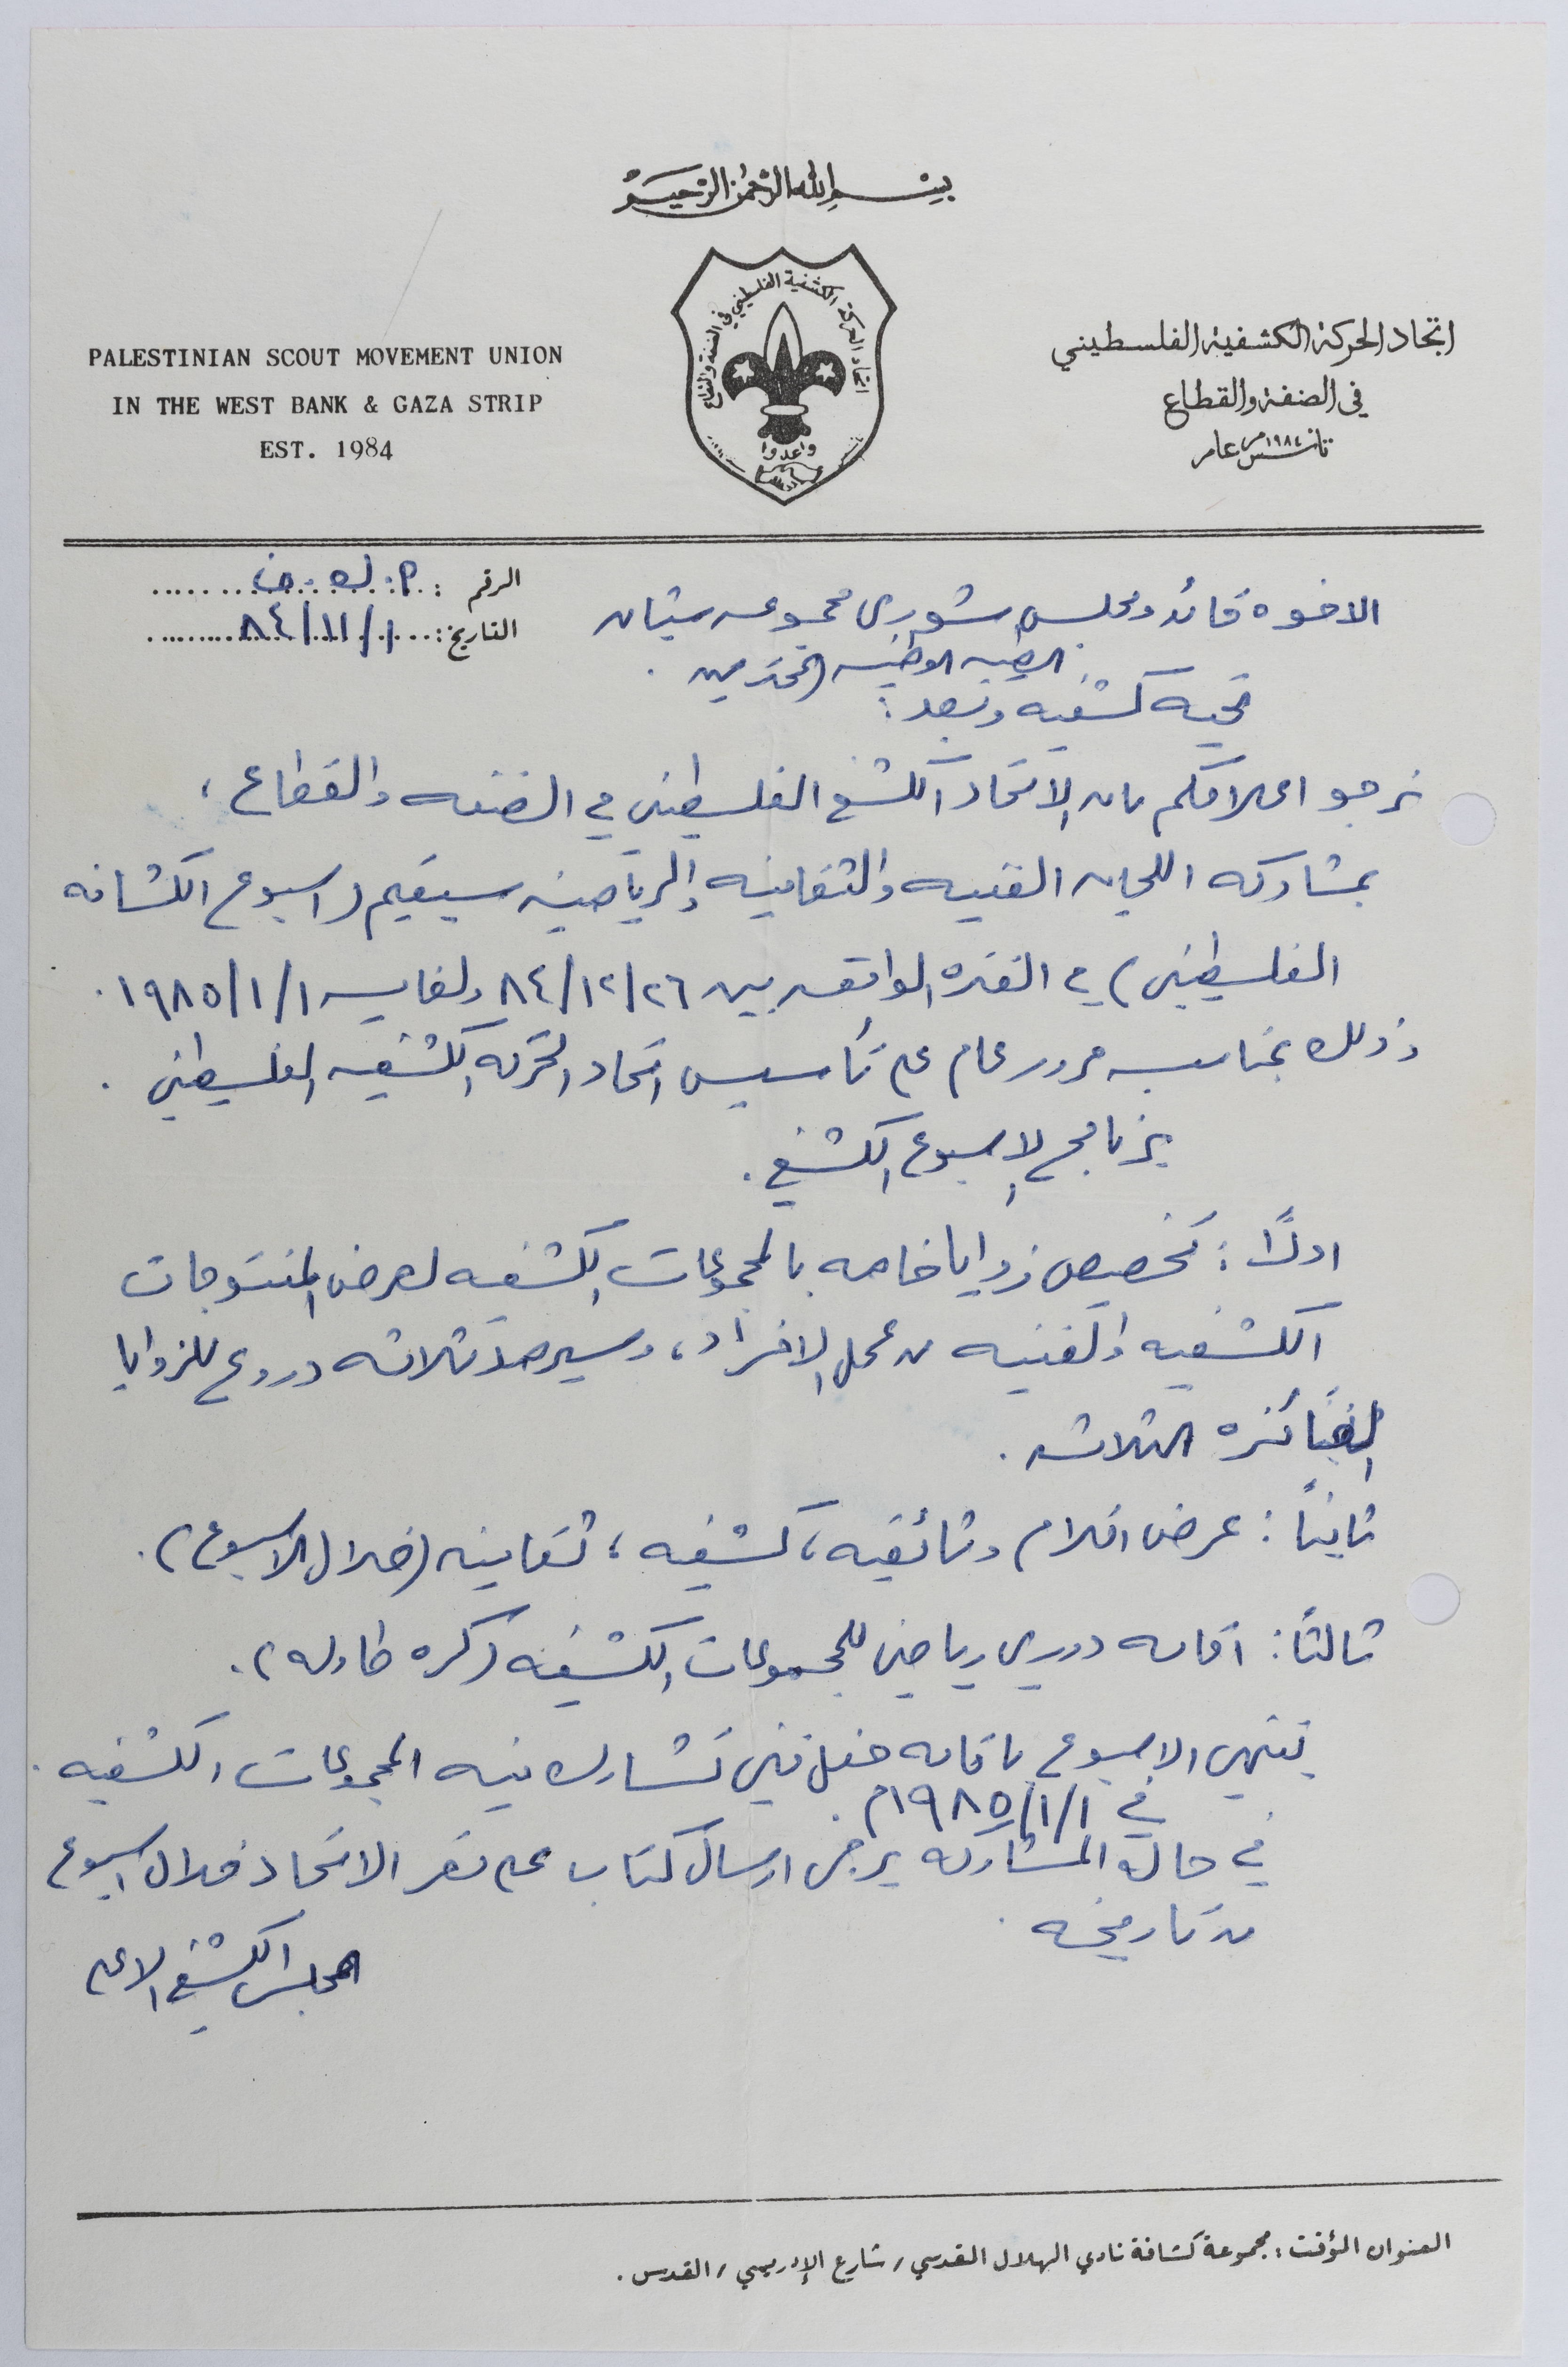 بسم الله الرحمن الرحيم
PALESTINIAN SCOUT MOVEMENT UNION
IN THE WEST BANK & GAZA STRIP
EST. 1984
اتحاد الحركة الكشفية الفلسطيني في الضفة والقطاع
واعدوا
اتحاد الحركة الكشفية الفلسطيني
في الضفة والقطاع
تأسس عام ١٩٨٤م
الرقم :
التاريخ: ١/١١/٨٤
الاخوه قائد ومجلس شورى مجموعه شبان
المحترمين .
تحيه كشفيه وبعد :
نرجو اعلامكم بان الاتحاد الكشفي الفلسطيني في الضفه والقطاع ،
بمشاركه اللجان الفنيه والثقافيه والرياضيه سيقيم (اسبوع الكشافه
الفلسطيني) في الفتره الواقعه بين ٢٦/١٢/٨٤ ولغايه ١/١/١٩٨٥ .
وذلك بمناسبه مرور عام على تأسيس اتحاد الحركه الكشفيه الفلسطيني .
برنامج الاسبوع الكشفي .
اولاً : تخصيص زوايا خاصه بالمجموعات الكشفيه لعرض المنتوجات
الكشفيه والفنيه من عمل الافراد ، وسيرصد ثلاثه دروع للزوايا
الفائزه الثلاثه .
ثانياً : عرض افلام وثائقيه ، كشفيه ، ثقافيه (خلال الاسبوع) .
ثالثاً : اقامه دوري رياضي للمجموعات الكشفيه (كره طاوله) .
ينتهي الاسبوع باقامه حفل فني تشارك فيه المجموعات الكشفيه .
في ١/١/١٩٨٥م .
في حاله المشاركه يرجى ارسال كتاب على مقر الاتحاد خلال اسبوع
من تاريخه .
المجلس الكشفي الاعلى
العنوان المؤقت : مجموعة كشافة نادي الهلال المقدسي / شارع الإدريسي / القدس .